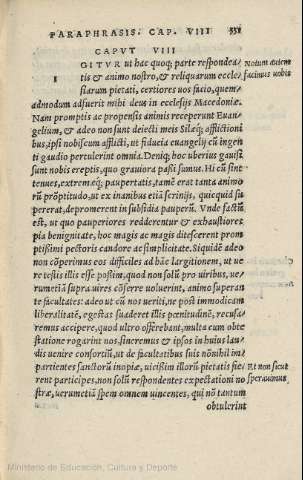 PARAPHRASIS. CAP. VIII 551
CAPVT VIII
GITVR ut hac quoq; parte respondea Notum autem
tis & animo nostro, & reliquarum eccle facimus uobis
siarum pietati, certiores uos facio, quem
admodum adfuerit mihi deus in ecclesijs Macedoniæ.
Nam promptis ac propensis animis receperunt Euan
gelium, & adeo non sunt deiecti meis Silæq; afflictioni
bus, ipsi nobiscum afflicti, ut fiducia euangelij cū ingen
ti gaudio pertulerint omnia. Deniq; hoc uberius gauisi
sunt nobis ereptis, quo grauiora passi sumus. Hi cū sint
tenues, extremæq; paupertatis, tamē erat tanta animo
rū prōptitudo, ut ex inanibus etiā scrinijs, quicquid su
pererat, depromerent in subsidia pauperū. Vnde factū
est, ut quo pauperiores redderentur & exhaustiores
pia benignitate, hoc magis ac magis ditescerent prom
ptissimi pectoris candore ac simplicitate. Siquidē adeo
non cōperimus eos difficiles ad hāc largitionem, ut ue
re testis illis esse possim, quod non solū pro uiribus, ue
rumetiā supra uires cōferre uoluerint, animo superan
te facultates: adeo ut cū nos ueriti, ne post immodicam
liberalitatē, egestas suaderet illis pœnitudinē, recusa
remus accipere, quod ultro offerebant, multa cum obte
statione rogarint nos, sineremus & ipsos in huius lau
dis uenire consortiū, ut de facultatibus suis nōnihil im
partientes sanctorū inopiæ, uicissim illorū pietatis fie/ Et non sicut
rent participes, non solū respondentes expectationi no sperauimus
stræ, uerumetiā spem omnem uincentes, qui nō tantum
obtulerint
Ministerio de Educación, Cultura y Deporte